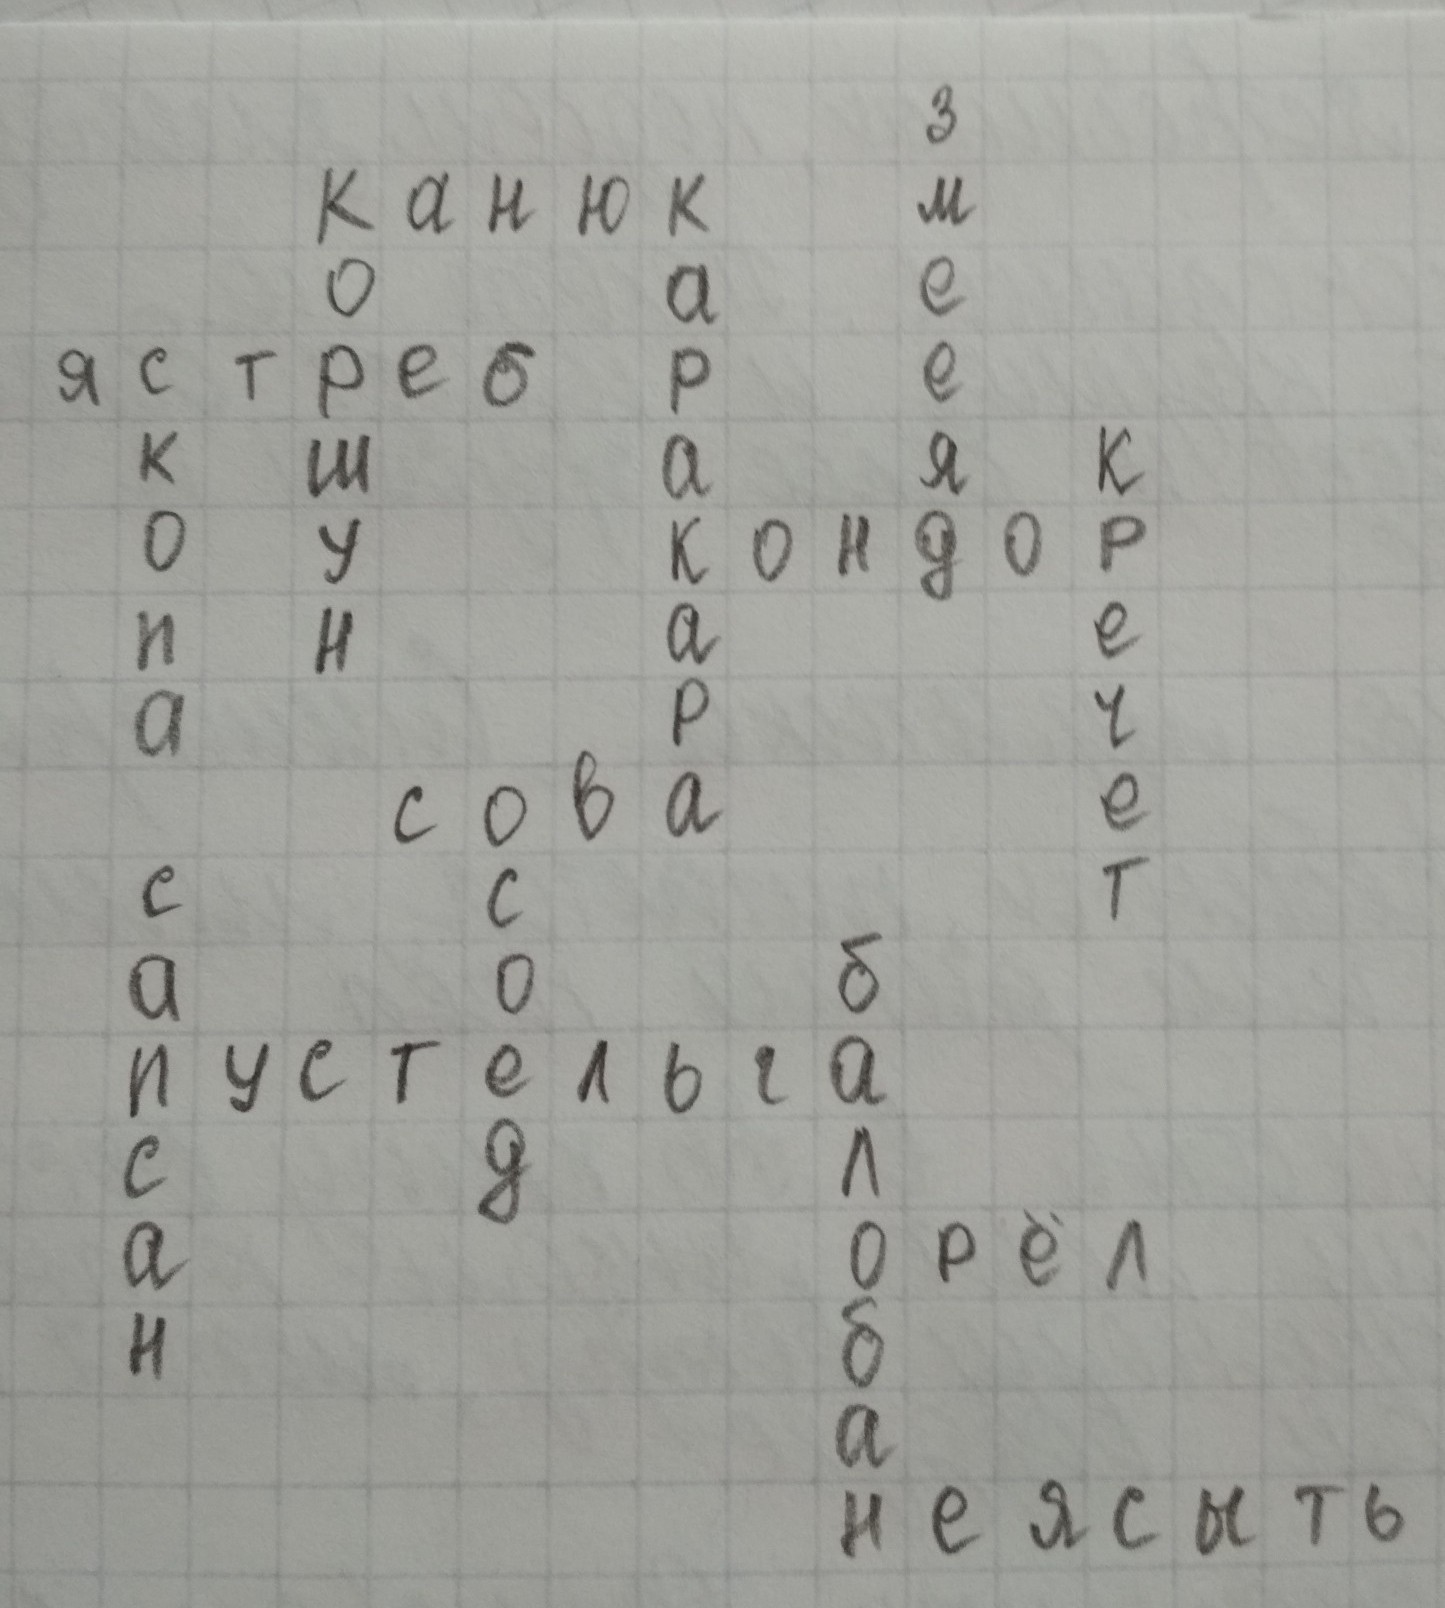 з
канюк м
о а е
ястреб р е
к ш а я к
о у кондор
п н а е
а р ч
сова е
с с т
а о б
пустельга
с д л
а орёл
н б
а
неясыть